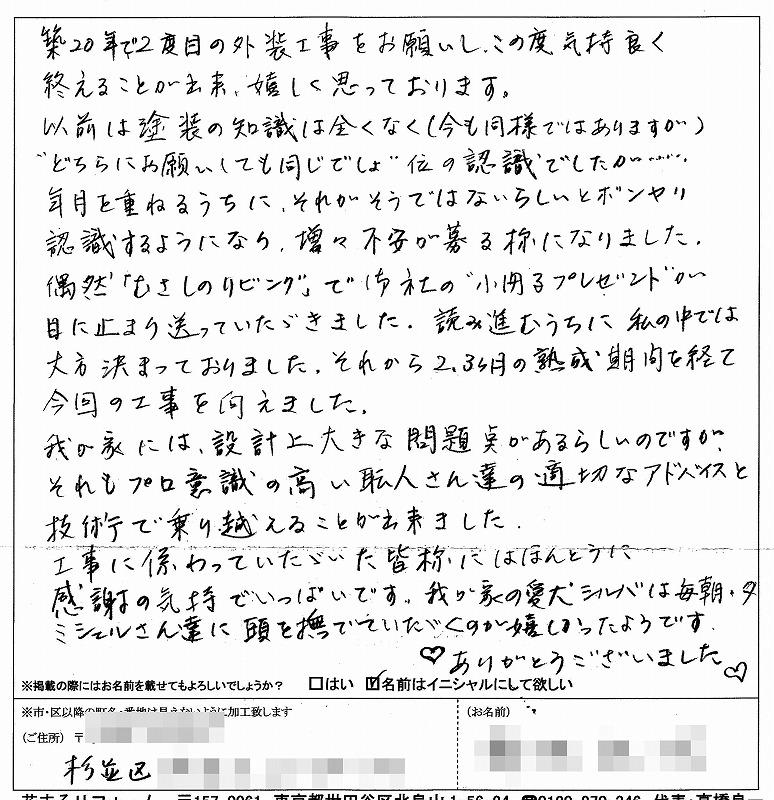 築20年で2度目の外装工事をお願いし、この度気持良く
終えることが出来、嬉しく思っております。
以前は塗装の知識は全くなく(今も同様ではありますが)
"どちらにお願いしても同じでしょ"位の認識でしたが……
年月を重ねるうちに、それがそうではないらしいとボンヤリ
認識するようになり、増々不安が募る様になりました。
偶然「むさしのリビング」で御社の"小冊子プレゼント"が
目に止まり送っていただきました。読み進むうちに私の中では
大方決まっておりました。それから2,3ヶ月の熟成期間を経て
今回の工事を向えました。
我が家には、設計上大きな問題点があるらしいのですが、
それもプロ意識の高い職人さん達の適切なアドバイスと
技術で乗り越えることが出来ました。
工事に係わっていただいた皆様にはほんとうに
感謝の気持でいっぱいです。我が家の愛犬シルバは毎朝・夕
ミシェルさん達に頭を撫でていただくのが嬉しかったようです。
♡ありがとうございました♡
※掲載の際にはお名前を載せてもよろしいでしょうか? □はい ☑名前はイニシャルにして欲しい
※市・区以降の町名・番地は見えないように加工致します
(お名前)
(ご住所) 〒
杉並区